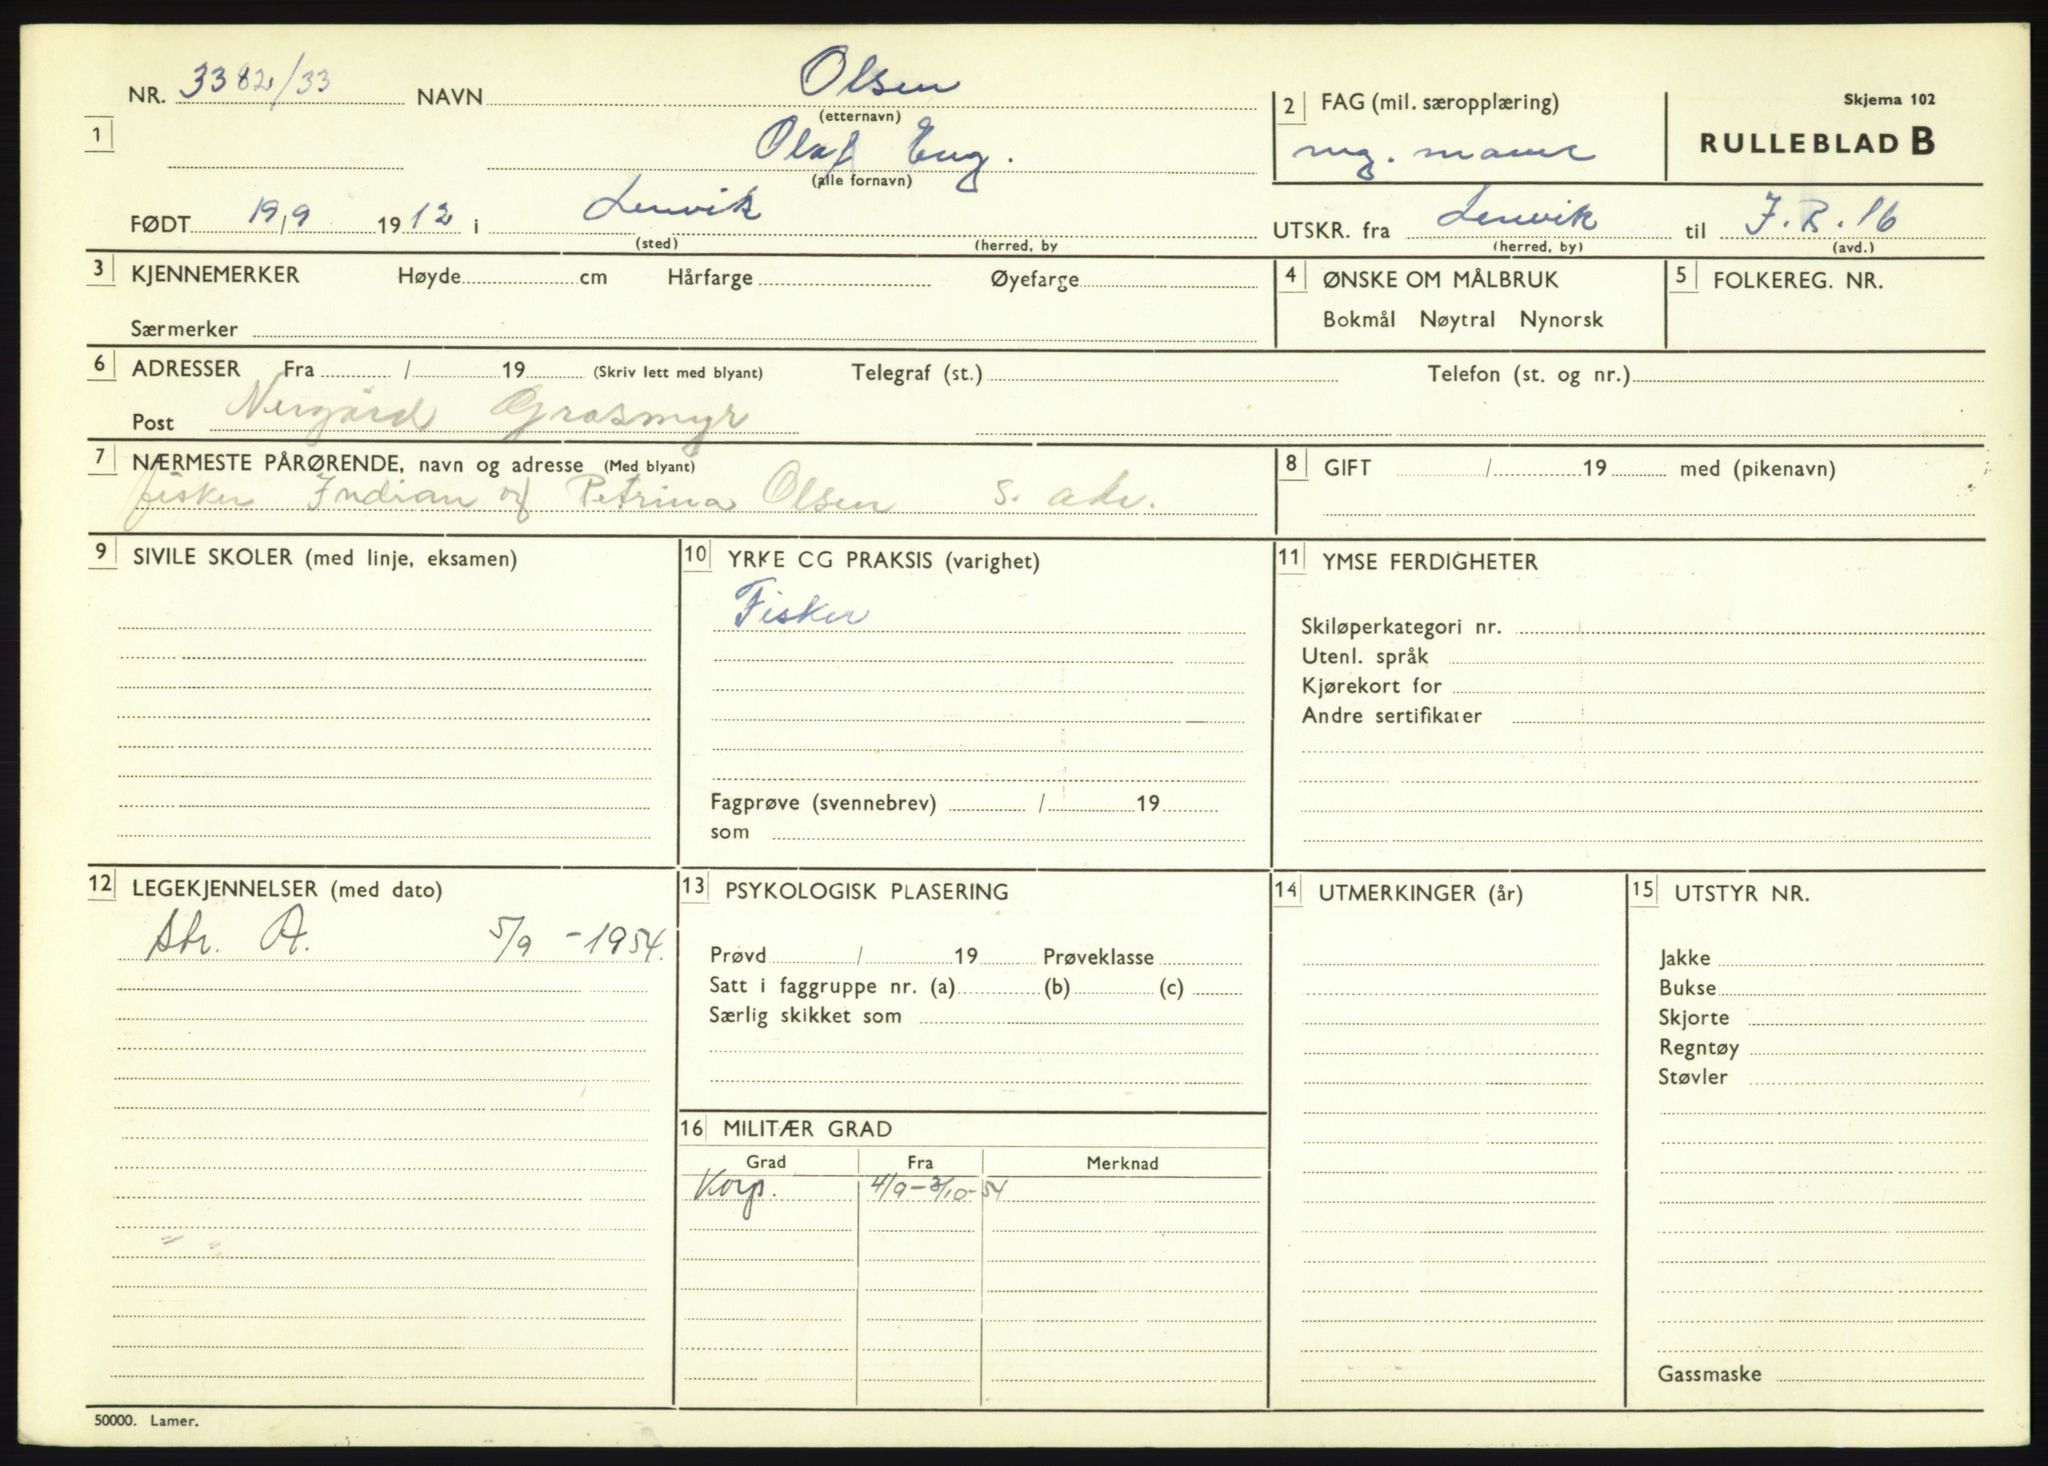 NR. 3382/33 NAVN Olsen Skjema 102
(etternavn) 2 FAG (mil. særopplæring)
1 Olaf Eug. mg. mann RULLEBLAD B
(alle fornavn)
FØDT 19/9 1912 i Lenvik UTSKR. fra Lenvik til I.R. 16
(sted) (herred, by (herred, by) (avd.)
3 KJENNEMERKER Høyde cm Hårfarge Øyefarge 4 ØNSKE OM MÅLBRUK 5 FOLKEREG. NR.
Særmerker Bokmål Nøytral Nynorsk
6 ADRESSER Fra / 19 (Skriv lett med blyant) Telegraf (st.) Telefon (st. og nr.)
Post Nergård Grasmyr
7 NÆRMESTE PÅRØRENDE, navn og adresse (Med blyant) 8 GIFT / 19 med (pikenavn)
fisker Indian og Petrina Olsen s. adr.
9 SIVILE SKOLER (med linje, eksamen) 10 YRKE CG PRAKSIS (varighet) 11 YMSE FERDIGHETER
Fisker
Skiløperkategori nr.
Utenl. språk
Kjørekort for
Andre sertifikater
Fagprøve (svennebrev) / 19
som
12 LEGEKJENNELSER (med dato) 13 PSYKOLOGISK PLASERING 14 UTMERKINGER (år) 15 UTSTYR NR.
Str. A. 5/9 - 1954.
Prøvd / 19 Prøveklasse Jakke
Satt i faggruppe nr. (a) (b) (c) Bukse
Særlig skikket som Skjorte
Regntøy
Støvler
16 MILITÆR GRAD
Grad Fra Merknad
Korp. 4/9-3/10-54
Gassmaske
50000. Lamer.